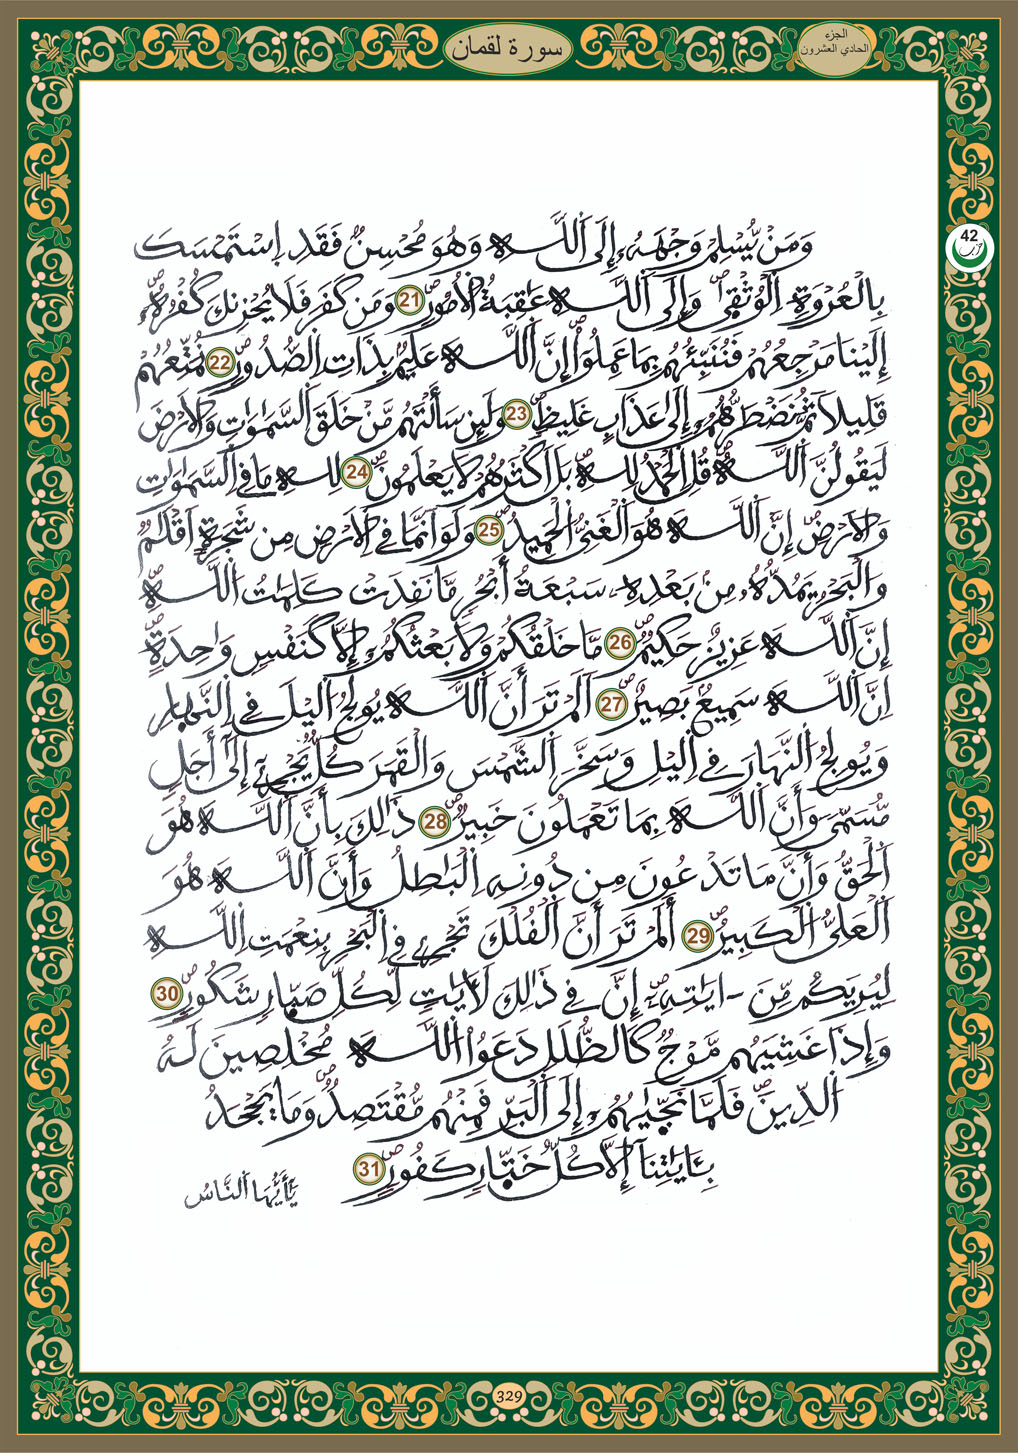 سورة لقمان
الجزء
الحادي العشرون
42
حزب
وَمَنْ يُّسْلِمْ وَجْهَهُۥٓ إِلَى اَللَّهِ وَهُوَ مُحْسِنٌ فَقَدِ اِسْتَمْسَكَ
بِالْعُرْوَةِ اِلْوُثْقَىٰ وَإِلَى اَللَّهِ عَٰقِبَةُ اُلْأُمُورِ 21 وَمَن كَفَرَ فَلَا يُحْزِنكَ كُفْرُهُۥٓ
إِلَيْنَا مَرْجِعُهُمْ فَنُنَبِّئُهُم بِمَا عَمِلُوٓاْ إِنَّ اَللَّهَ عَلِيمٌ بِذَاتِ اِلصُّدُورِ 22 نُمَتِّعُهُمْ
قَلِيلاً ثُمَّ نَضْطَرُّهُمُۥٓ إِلَىٰ عَذَابٍ غَلِيظٍ 23 وَلَئِن سَأَلْتَهُم مَّنْ خَلَقَ اَلسَّمَٰوَٰتِ وَالْأَرْضَ
لَيَقُولُنَّ اَللَّهُ قُلِ اِلْحَمْدُ لِلهِ بَلَ اَكْثَرُهُمْ لَا يَعْلَمُونَ 24 لِلهِ مَا فِي اِلسَّمَٰوَٰتِ
وَالْأَرْضِ إِنَّ اَللَّهَ هُوَ اَلْغَنِيُّ اُلْحَمِيدُ 25 وَلَوَ اَنَّمَا فِي اِلْأَرْضِ مِن شَجَرَةٍ اَقْلَٰمٌ
وَالْبَحْرُ يَمُدُّهُۥ مِنۢ بَعْدِهِۦ سَبْعَةُ أَبْحُرٍ مَّا نَفِدَتْ كَلِمَٰتُ اُللَّهِ
إِنَّ اَللَّهَ عَزِيزٌ حَكِيمٌ 26 مَّا خَلْقُكُمْ وَلَا بَعْثُكُمُۥٓ إِلَّا كَنَفْسٍ وَٰحِدَةٍ
اِنَّ اَللَّهَ سَمِيعٌ بَصِيرٌ 27 اَلَمْ تَرَ أَنَّ اَللَّهَ يُولِجُ اُليْلَ فِي اِلنَّهَارِ
وَيُولِجُ اُلنَّهَارَ فِي اِليْلِ وَسَخَّرَ اَلشَّمْسَ وَالْقَمَرَ كُلٌّ يَجْرِي إِلَىٰٓ أَجَلٍ
مُّسَمًّى وَأَنَّ اَللَّهَ بِمَا تَعْمَلُونَ خَبِيرٌ 28 ذَٰلِكَ بِأَنَّ اَللَّهَ هُوَ
اَلْحَقُّ وَأَنَّ مَا تَدْعُونَ مِن دُونِهِ اِلْبَٰطِلُ وَأَنَّ اَللَّهَ هُوَ
اَلْعَلِيُّ اُلْكَبِيرُ 29 أَلَمْ تَرَ أَنَّ اَلْفُلْكَ تَجْرِي فِي اِلْبَحْرِ بِنِعْمَتِ اِللَّهِ
لِيُرِيَكُم مِّنَ اٰيَٰتِهِۦٓ إِنَّ فِي ذَٰلِكَ لَأٓيَٰتٍ لِّكُلِّ صَبّٰارٍ شَكُورٍ 30
وَإِذَا غَشِيَهُم مَّوْجٌ كَالظُّلَلِ دَعَوُاْ اُللَّهَ مُخْلِصِينَ لَهُ
اُلدِّينَ فَلَمَّا نَجّٰيٰهُمُۥٓ إِلَى اَلْبَرِّ فَمِنْهُم مُّقْتَصِدٌ وَمَا يَجْحَدُ
بِـَٔايَٰتِنَآ إِلَّا كُلُّ خَتّٰارٍ كَفُورٍ 31
يَٰٓأَيُّهَا اَلنَّاسُ
329